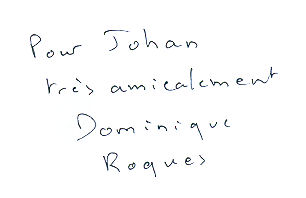 Pour Johan
très amicalement
Dominique
Roques